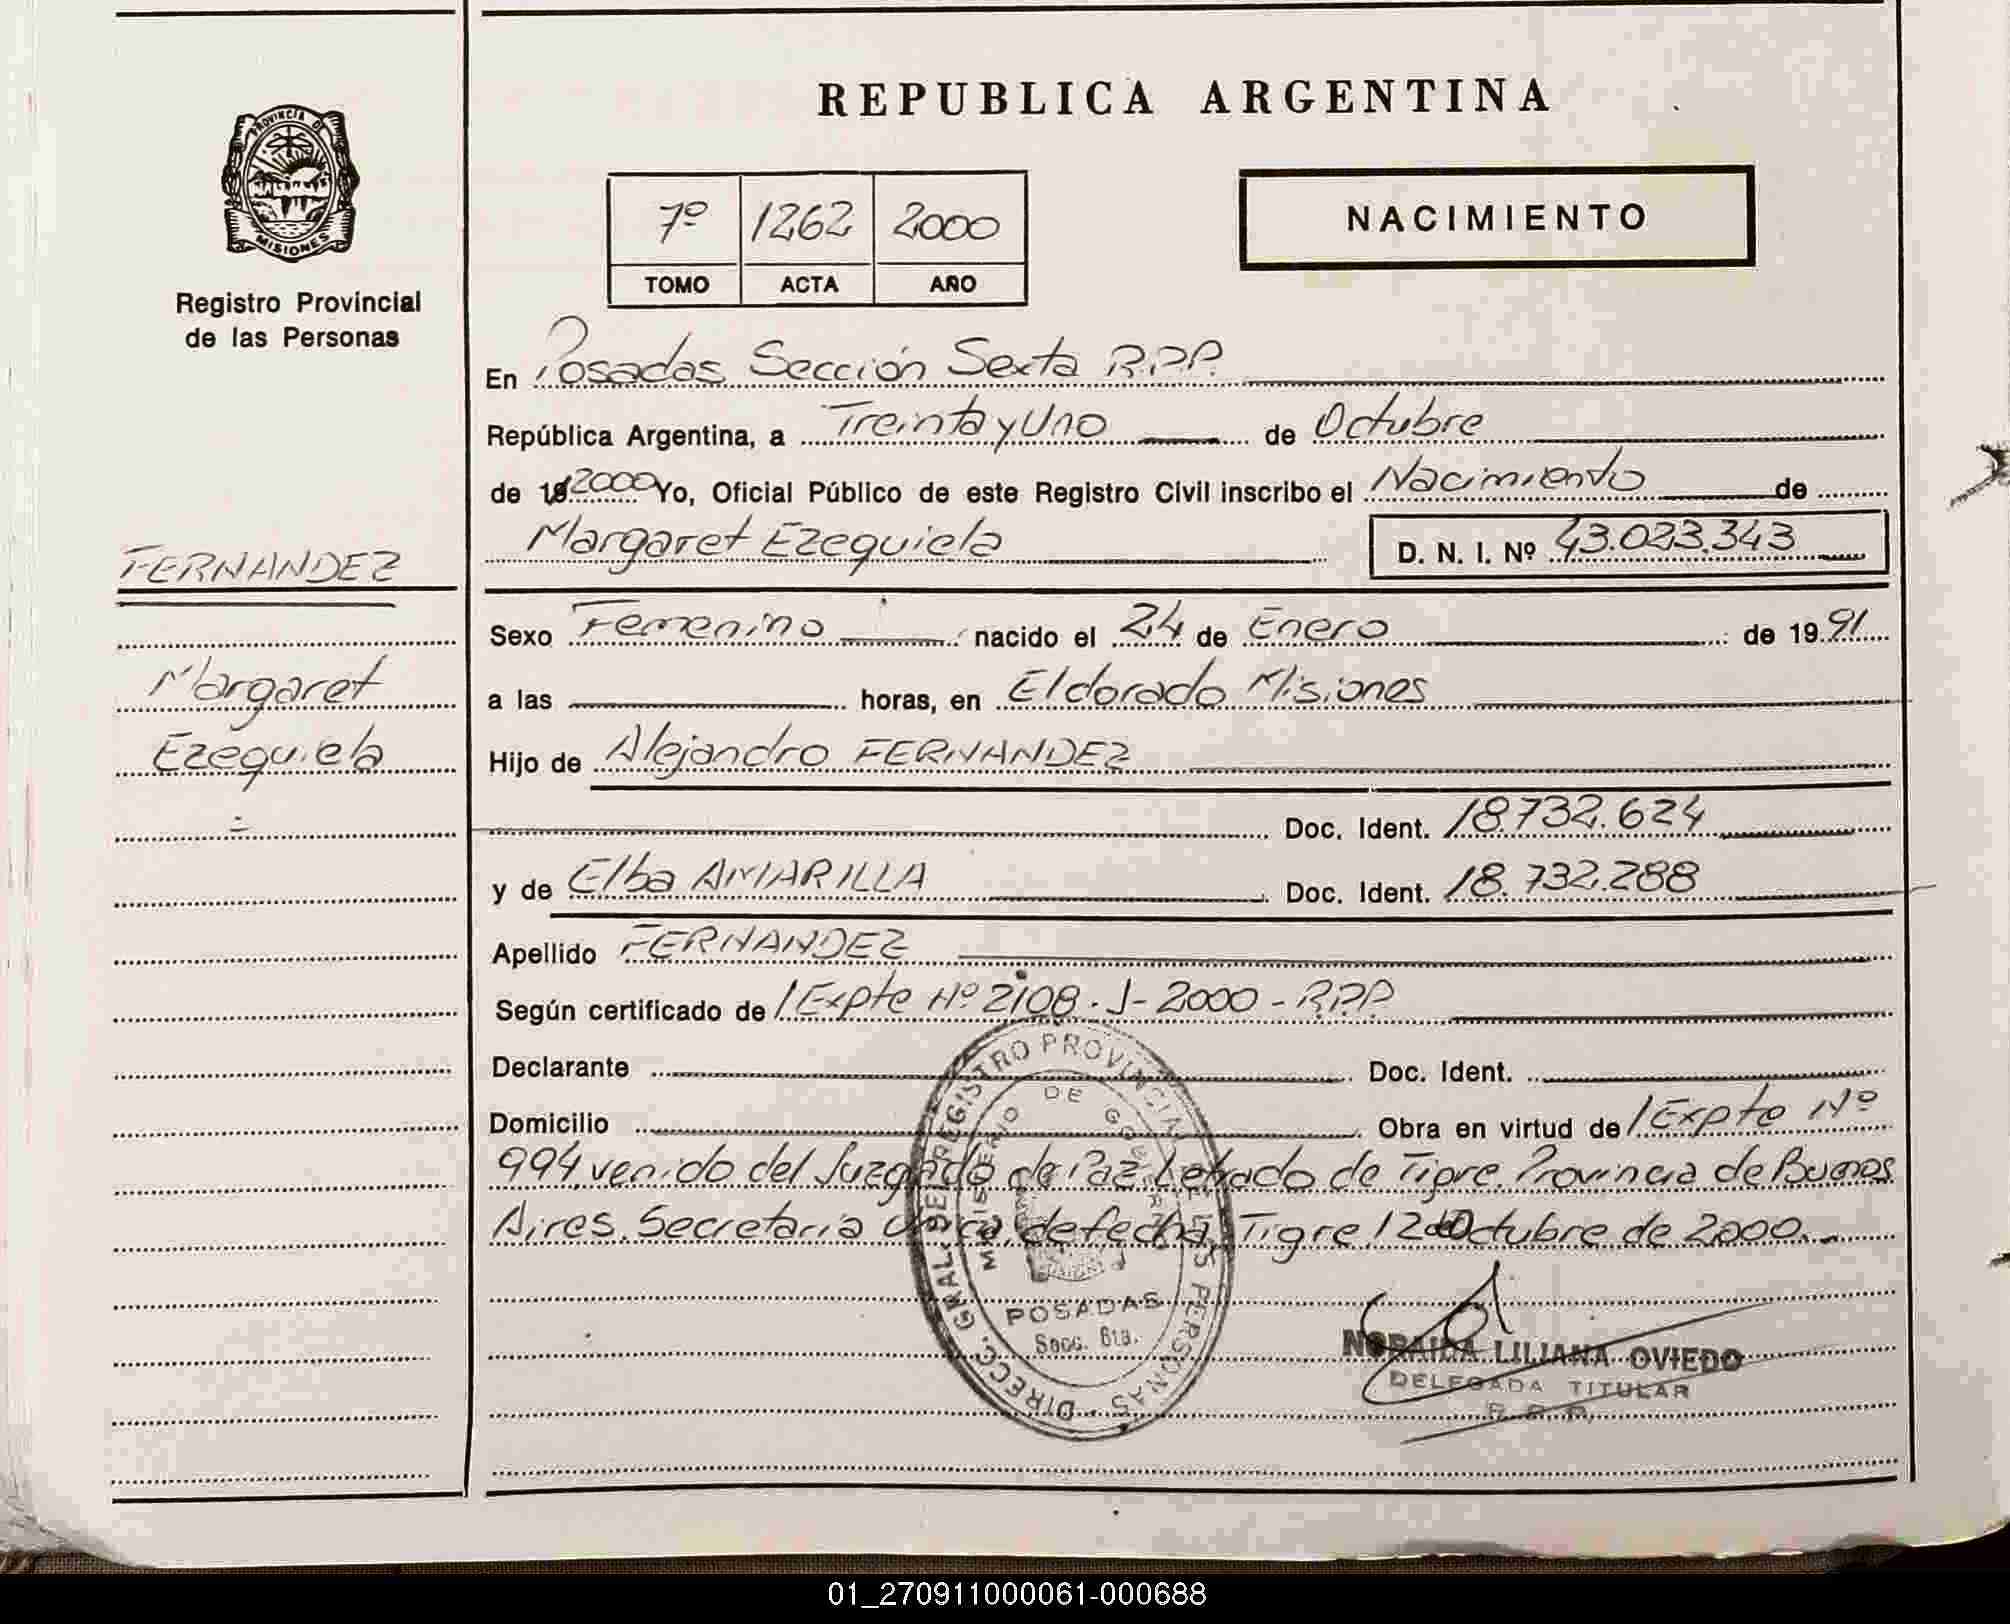 REPUBLICA ARGENTINA
PROVINCIA DE
MISIONES
Registro Provincial
de las Personas
7º 1262 2000
TOMO ACTA AÑO
NACIMIENTO
En Posadas Sección Sexta R.P.P.
República Argentina, a Treinta y Uno de Octubre
de 19 2000 Yo, Oficial Público de este Registro Civil inscribo el Nacimiento de
Margaret Ezequiela D. N. I. Nº 43.023.343
FERNANDEZ
Margaret
Ezequiela
Sexo Femenino nacido el 24 de Enero de 19 91
a las horas, en Eldorado Misiones
Hijo de Alejandro FERNANDEZ
Doc. Ident. 18.732.624
y de Elba AMARILLA Doc. Ident. 18.732.288
Apellido FERNANDEZ
Según certificado de / Expte Nº 2108-J-2000-R.P.P
Declarante Doc. Ident.
Domicilio Obra en virtud de / Expte Nº
994 venido del Juzgado de Paz Letrado de Tigre Provincia de Buenos
Aires. Secretaría Unica de fecha, Tigre 12 de Octubre de 2000.
DIRECC. GRAL. DEL REGISTRO PROVINCIAL DE LAS PERSONAS
MINISTERIO DE GOBIERNO
POSADAS
Secc. 6ta.
NORAIDA LILIANA OVIEDO
DELEGADA TITULAR
R. P. P.
01_270911000061-000688